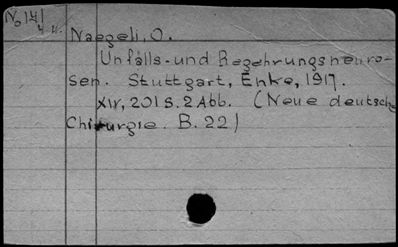 No 141
Naegeli, O.
Unfalls- und Begehrungsneuro-
sen. Stuttgart, Enke, 1917.
XIV, 201 S. 2 Abb. (Neue deutsche
Chirurgie. B. 22)